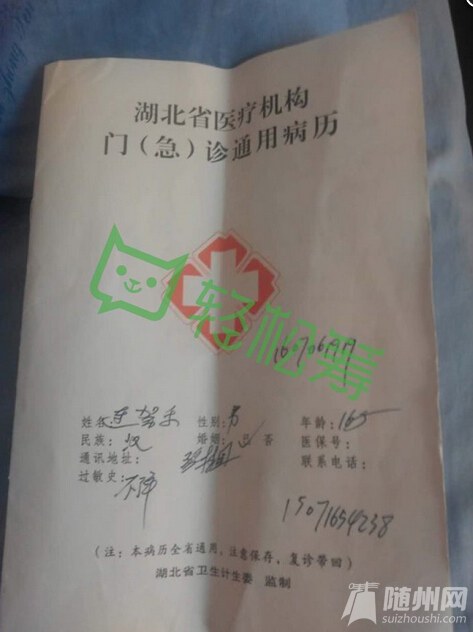 湖北省医疗机构
门（急）诊通用病历
轻松筹
姓名： 性别：男 年龄：
民族：汉 婚姻： 否 医保号：
通讯地址： 联系电话：
过敏史：不详
15071654238
（注：本病历全省通用，注意保存，复诊带回）
湖北省卫生计生委 监制
随州网
suizhoushi.com